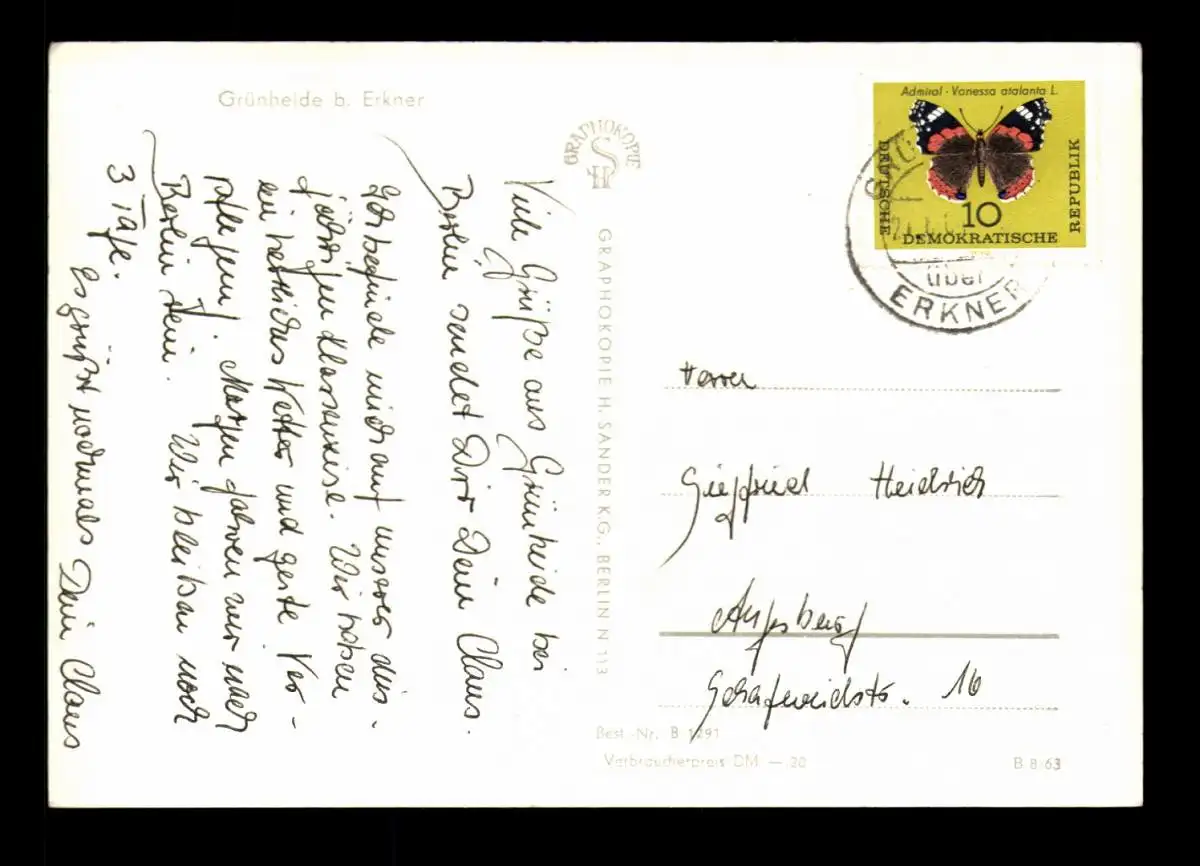 Grünheide b. Erkner
GRAPHOKOPIE
H S
GRAPHOKOPIE H. SANDER KG., BERLIN N 113
Admiral · Vanessa atalanta L.
DEUTSCHE
10
DEMOKRATISCHE
REPUBLIK
über
ERKNER
Viele Grüße aus Grünheide bei
Berlin sendet Dir Dein Claus.
Ich befinde mich auf unserer dies-
jährigen Klassenreise. Wir haben
ein herrliches Wetter und gute Ver-
pflegung. Morgen fahren wir nach
Berlin rein. Wir bleiben noch
3 Tage.
Es grüßt nochmals Dein Claus
Herrn
Siegfried Heidrich
Augsburg
16
Best.-Nr. B 1291
Verbraucherpreis DM —.20
B 8 63